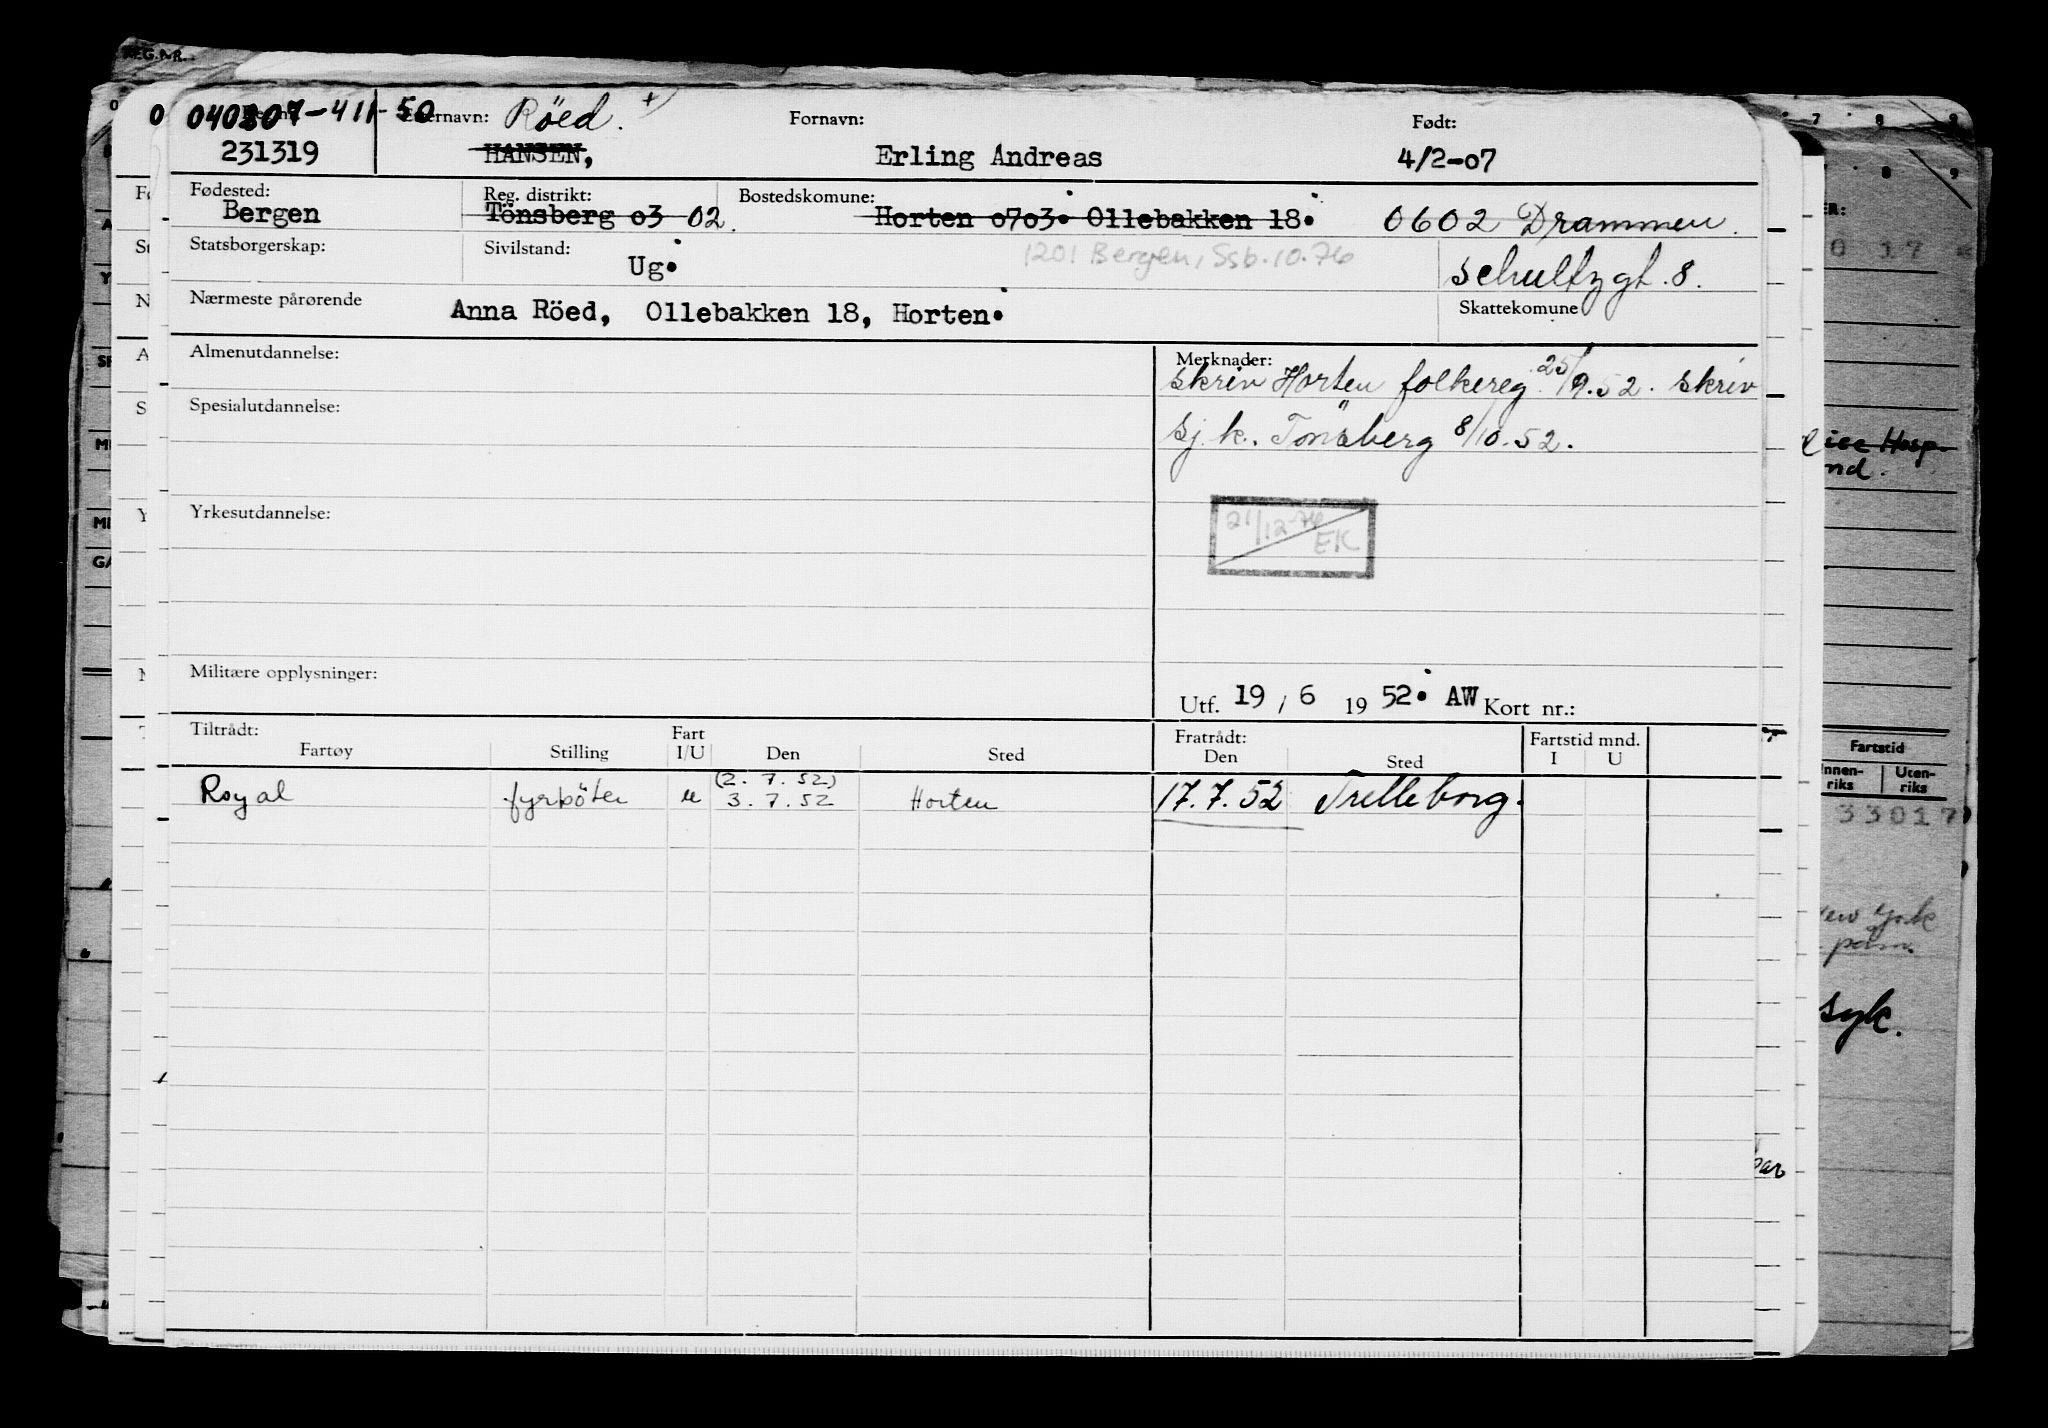 REG.NR.
040207-411-50 Etternavn: Röed. + Fornavn: Født:
231319 HANSEN, Erling Andreas 4/2-07
Fødested: Reg. distrikt: Bostedskomune:
Bergen Tönsberg o3 02. Horten o7o3. Ollebakken 18. 0602 Drammen.
Statsborgerskap: Sivilstand: Ug. 1201 Bergen, Ssb. 10.76 Schultzgt. 8.
Nærmeste pårørende Anna Röed, Ollebakken 18, Horten. Skattekomune
Almenutdannelse: Merknader:
skriv Horten folkereg. 25/9.52. skriv
Spesialutdannelse:
Sj. k. Tönsberg 8/10.52.
Yrkesutdannelse: 21/12-76 EK
Militære opplysninger:
Utf. 19 / 6 19 52. AW Kort nr.:
Tiltrådt: Fart Fratrådt: Fartstid mnd.
Fartøy Stilling I/U Den Sted Den Sted I U
(2. 7. 52)
Royal fyrböter u 3. 7. 52 Horten 17.7.52 Trelleborg.
7 8 9
8 9
Hosp.
nd.
Fartstid
Innen-riks Uten-riks
33017
New York
syk.